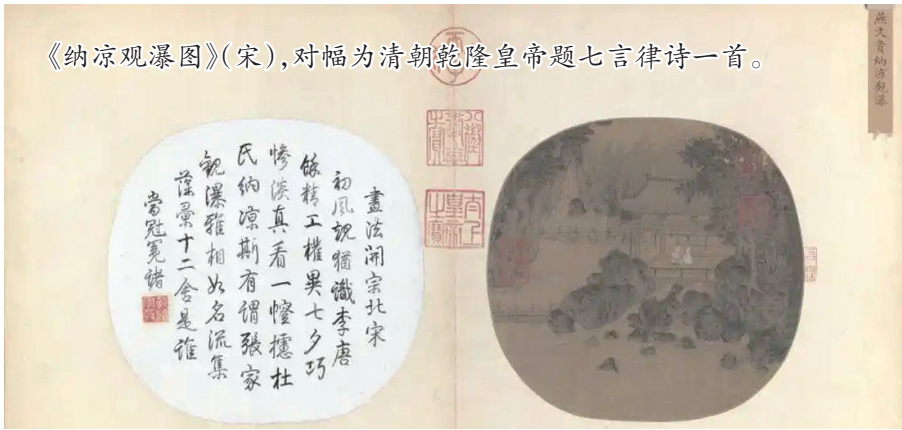 《纳凉观瀑图》(宋),对幅为清朝乾隆皇帝题七言律诗一首。
燕文貴納涼觀瀑
畫法開宗北宋
初風規猶識李唐
餘精工權異七夕巧
慘淡真看一幢攄杜
氏納涼斯有謂張家
觀瀑雅相如名流集
藻彙十二舍是誰
當冠冕諸
八徵耄念之寶
太上皇帝之寶